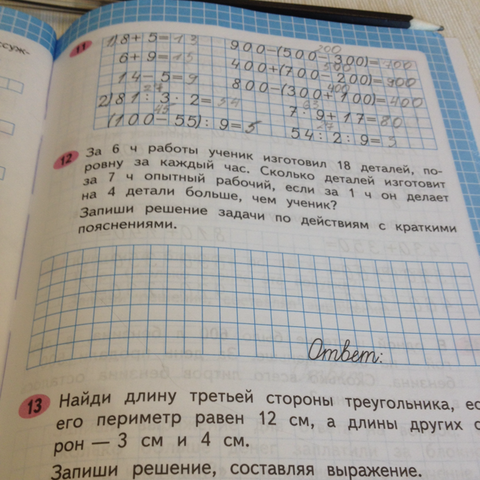 ссуж-
11
1) 8 + 5 = 13
900 - (500 - 300) = 700
6 + 9 = 15
400 + (700 - 200) = 900
14 - 5 = 9
800 - (300 + 100) = 400
2) 81 : 3 · 2 = 54
7 · 9 + 17 = 80
(100 - 55) : 9 = 5
54 : 2 : 9 = 3
12 За 6 ч работы ученик изготовил 18 деталей, по-
ровну за каждый час. Сколько деталей изготовит
за 7 ч опытный рабочий, если за 1 ч он делает
на 4 детали больше, чем ученик?
Запиши решение задачи по действиям с краткими
пояснениями.
Ответ:
13 Найди длину третьей стороны треугольника, ес
его периметр равен 12 см, а длины других с
рон — 3 см и 4 см.
Запиши решение, составляя выражение.